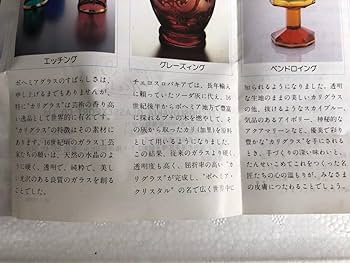 エッチング
グレーズィング
ペントロイング
ボヘミアグラスのすばらしさは、
申し上げるまでもありませんが、
特に"カリグラス"は芸術の香り高
い逸品として世界的に有名です。
"カリグラス"の特徴はその素材に
あります。16世紀頃のガラス工芸
家たちの願いは、天然の水晶のよ
うに硬く、透明で、純粋で、美し
い光沢のある良質のガラスを創る
ことでした。
チェコスロバキアでは、長年輸入
に頼っていたソーダ灰に代え、16
世紀後半からボヘミア地方で豊富
に採れるブナの木を燃やして、そ
の灰から取ったカリ(加里)を原料
として用いるようになりました。
この結果、従来のガラスより硬く、
透明度も高く、屈折率の高い"カ
リグラス"が完成し、"ボヘミア・
クリスタル"の名で広く世界中に
知られるようになりました。透明
な生地のままの美しいカリグラス
の他、抜けるようなスカイブルー、
気品のあるアイボリー、神秘的な
アクアマリーンなど、優美で彩り
豊かな"カリグラス"を手にされる
とき、手づくりの深い味わいと、
たんせいこめてこれをつくった名
匠たちの心の温もりが、みなさま
の皮膚につたわることでしょう。